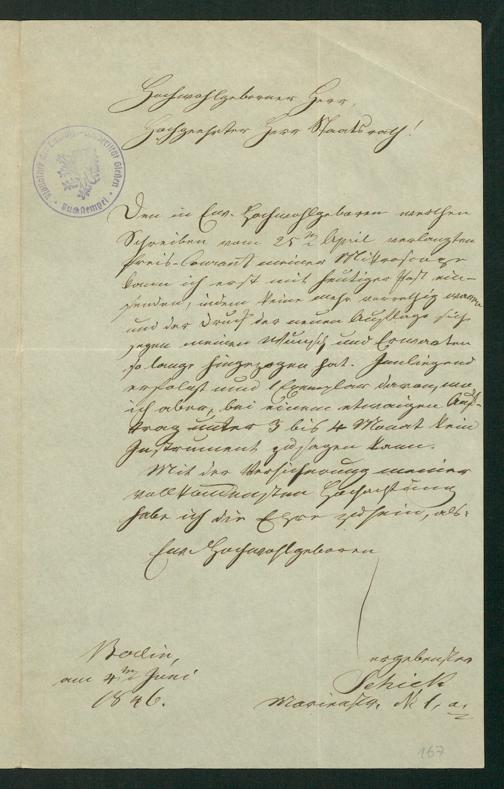 Hochwohlgeborner Herr,
Hochgeehrter Herr Staatsrath!
Den in Euv. Hochwohlgeboren werthen
Schreiben vom 25ten April verlangten
Preis-Courant meiner Mikroscope
kann ich erst mit heutiger Post ein-
senden, indem keine mehr vorräthig waren
und der Druck der neuen Auflage sich
gegen meinen Wunsch und Erwarten
so lange hingezogen hat. Inliegend
erfolgt nun 1 Exemplar davon, wo
ich aber, bei einem etwaigen Auf-
trag unter 3 bis 4 Monat kein
Instrument zusagen kann.
Mit der Versicherung meiner
vollkommensten Hochachtung
habe ich die Ehre zu sein, als:
Euv. Hochwohlgeboren
Berlin,
am 4ten Juni
1846.
ergebenster
Schiek
Marienstr. N 1, a.
167